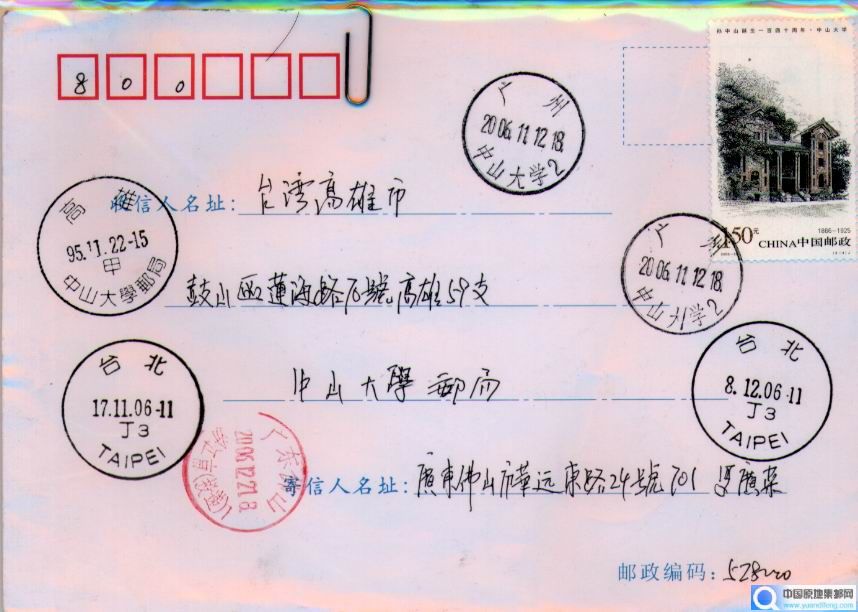 孙中山诞生一百四十周年·中山大学
800
广州
2006.11.12.18
中山大学2
1.50元
1866-1925
CHINA中国邮政
收信人名址：台湾高雄市
高雄
95.11.22-15
甲
中山大學郵局
广州
2006.11.12.18
中山大学2
鼓山區蓮海路70號高雄59支
中山大學郵局
台北
17.11.06-11
J3
TAIPEI
台北
8.12.06-11
J3
TAIPEI
广东佛山
2006.12.21.8
寄信人名址：廣東佛山市華远東路24號701
邮政编码：528000
中国原地集邮网
www.yuandifeng.com